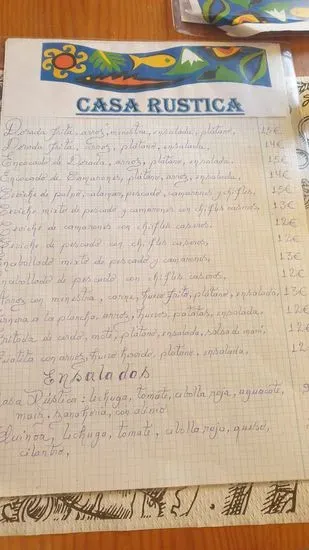 CASA RUSTICA
Dorada frita, arros, minestra, ensalada, platano, 15€
Dorada frita, arros, platano, ensalada. 14€
Encocado de Dorada, arros, platano, ensalada. 15€
Encocado de Cammarones, platano, arros, ensalada. 14€
Ceviche de pulpo, calamar, pescado, camarones y chifles. 15€
Ceviche mixto de pescado y camarones con chifles caseros. 13€
Ceviche de camarones con chifles caseros. 12€
Ceviche de pescado con chifles caseros, 12€
Encebollado mixto de pescado y camarones, 13€
Encebollado de pescado con chifles caseros. 12€
con minestra, carne, huevo frito, platano, ensalada, 13€
a la plancha, arros, huevo, patatas, ensalada. 12€
de cerdo, mote, platano, ensalada, salsa de maní, 12€
Guatita con arros, huevo hervido, platano, ensalada. 12
Ensalados
Casa Rustica: lechuga, tomate, cibolla roja, aguacate,
maiz, zanahoria, con atún.
Quinoa, lechuga, tomate, cibolla roja, queso,
cilantro,